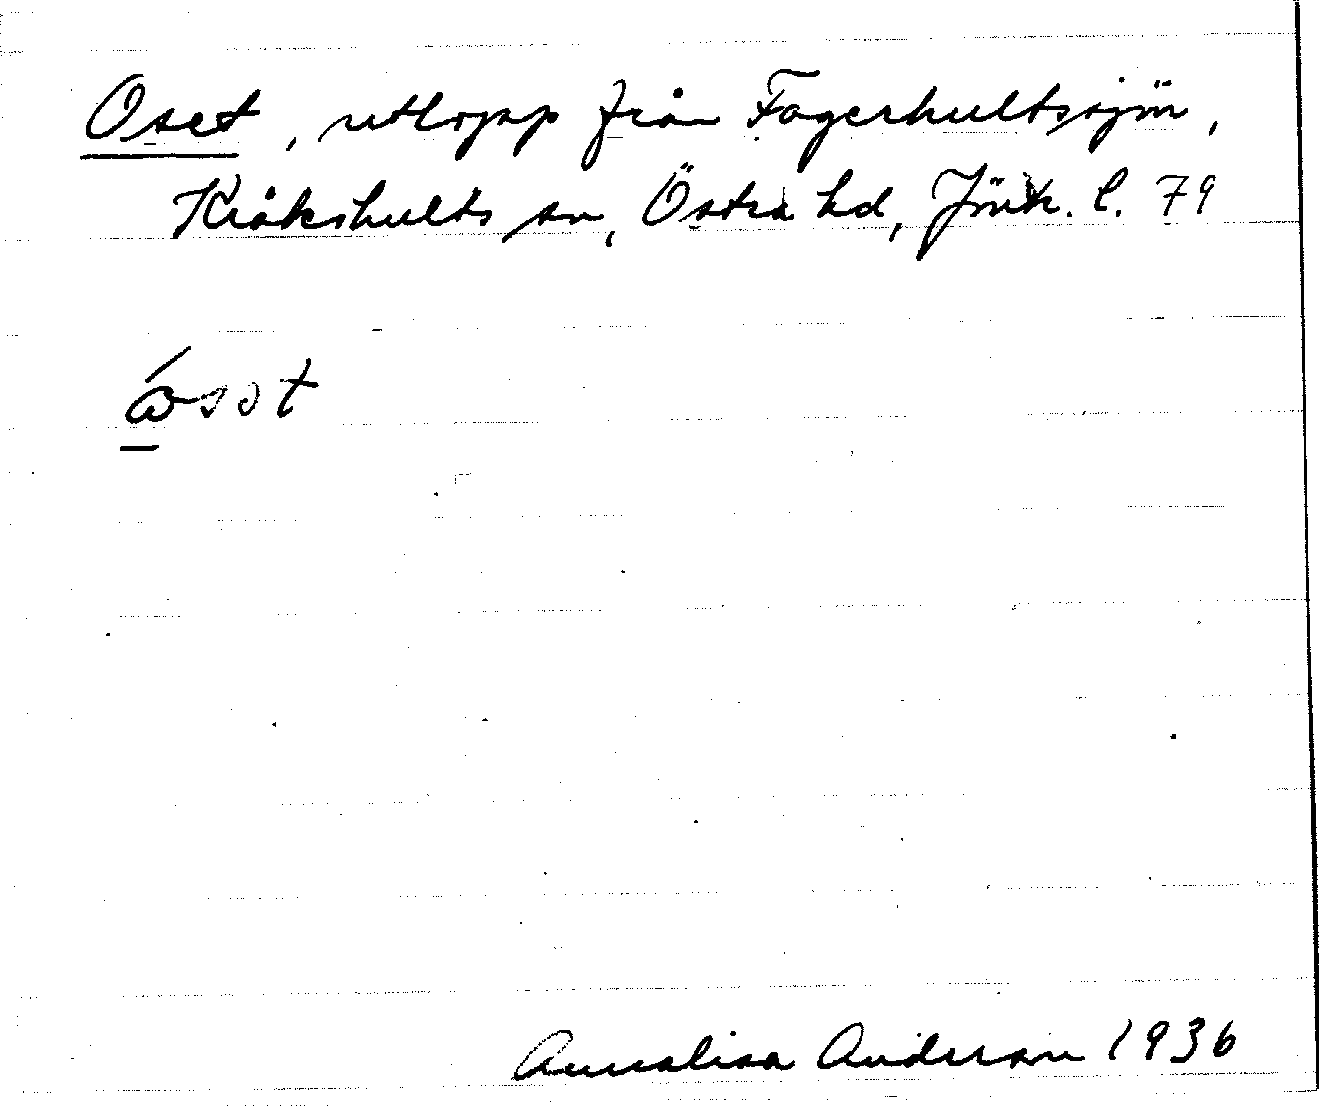 Oset, utlopp från Fagerhultssjön,
Kråkshults sn, Östra hd, Jönk. l. 79
ɷ́sət
Annalisa Anderson 1936